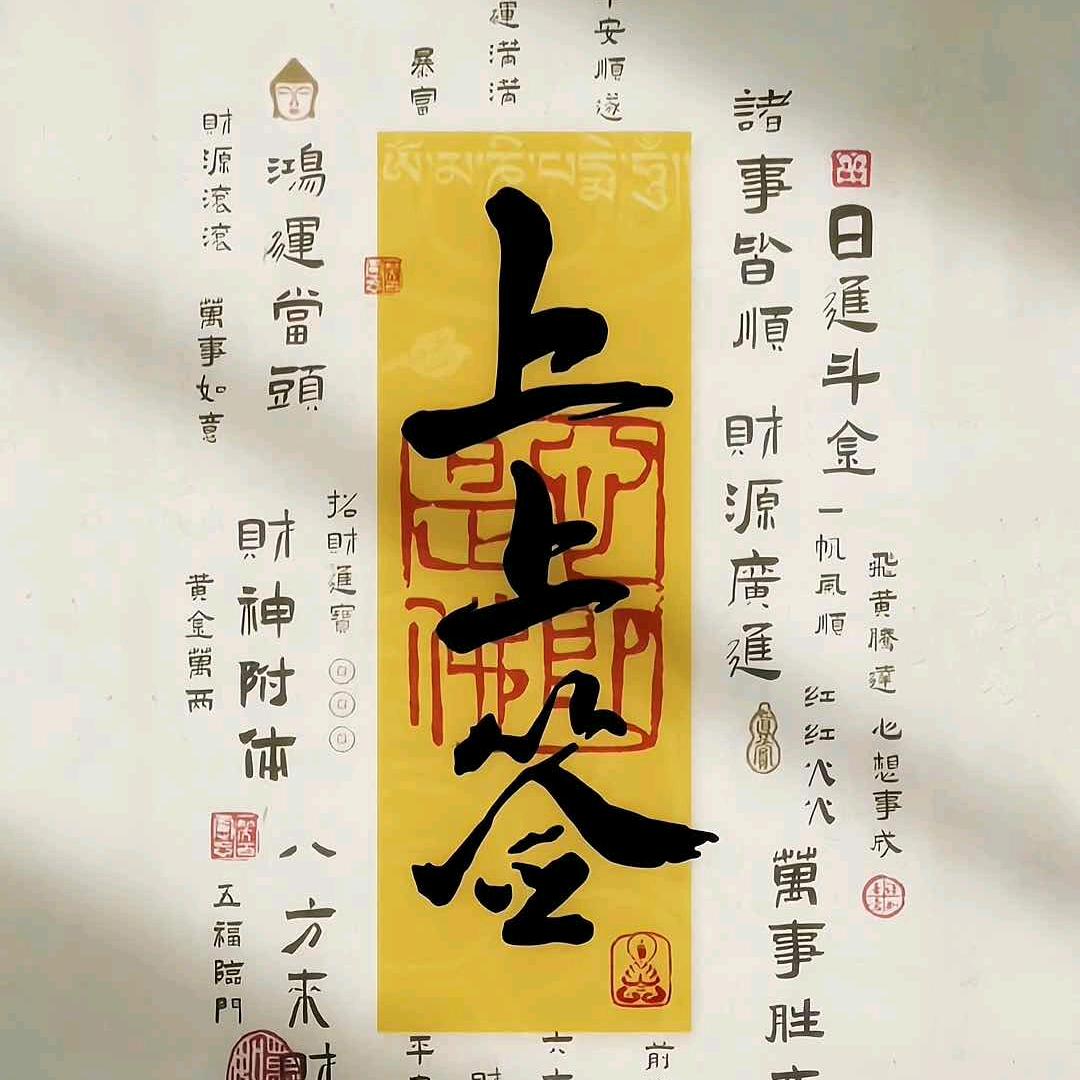 飛黄騰達
心想事成
日進斗金
一帆风順
红红火火
諸事皆順
財源廣進
萬事胜
安順遂
運满满
暴富
ཨོཾ་མ་ཎི་པ་དྨེ་ཧཱུྃ།
上上签
心即
是佛
招財進寶
鴻運當頭
財神附体
八方来財
財源滚滚
萬事如意
黄金萬两
五福臨門
前
六
平